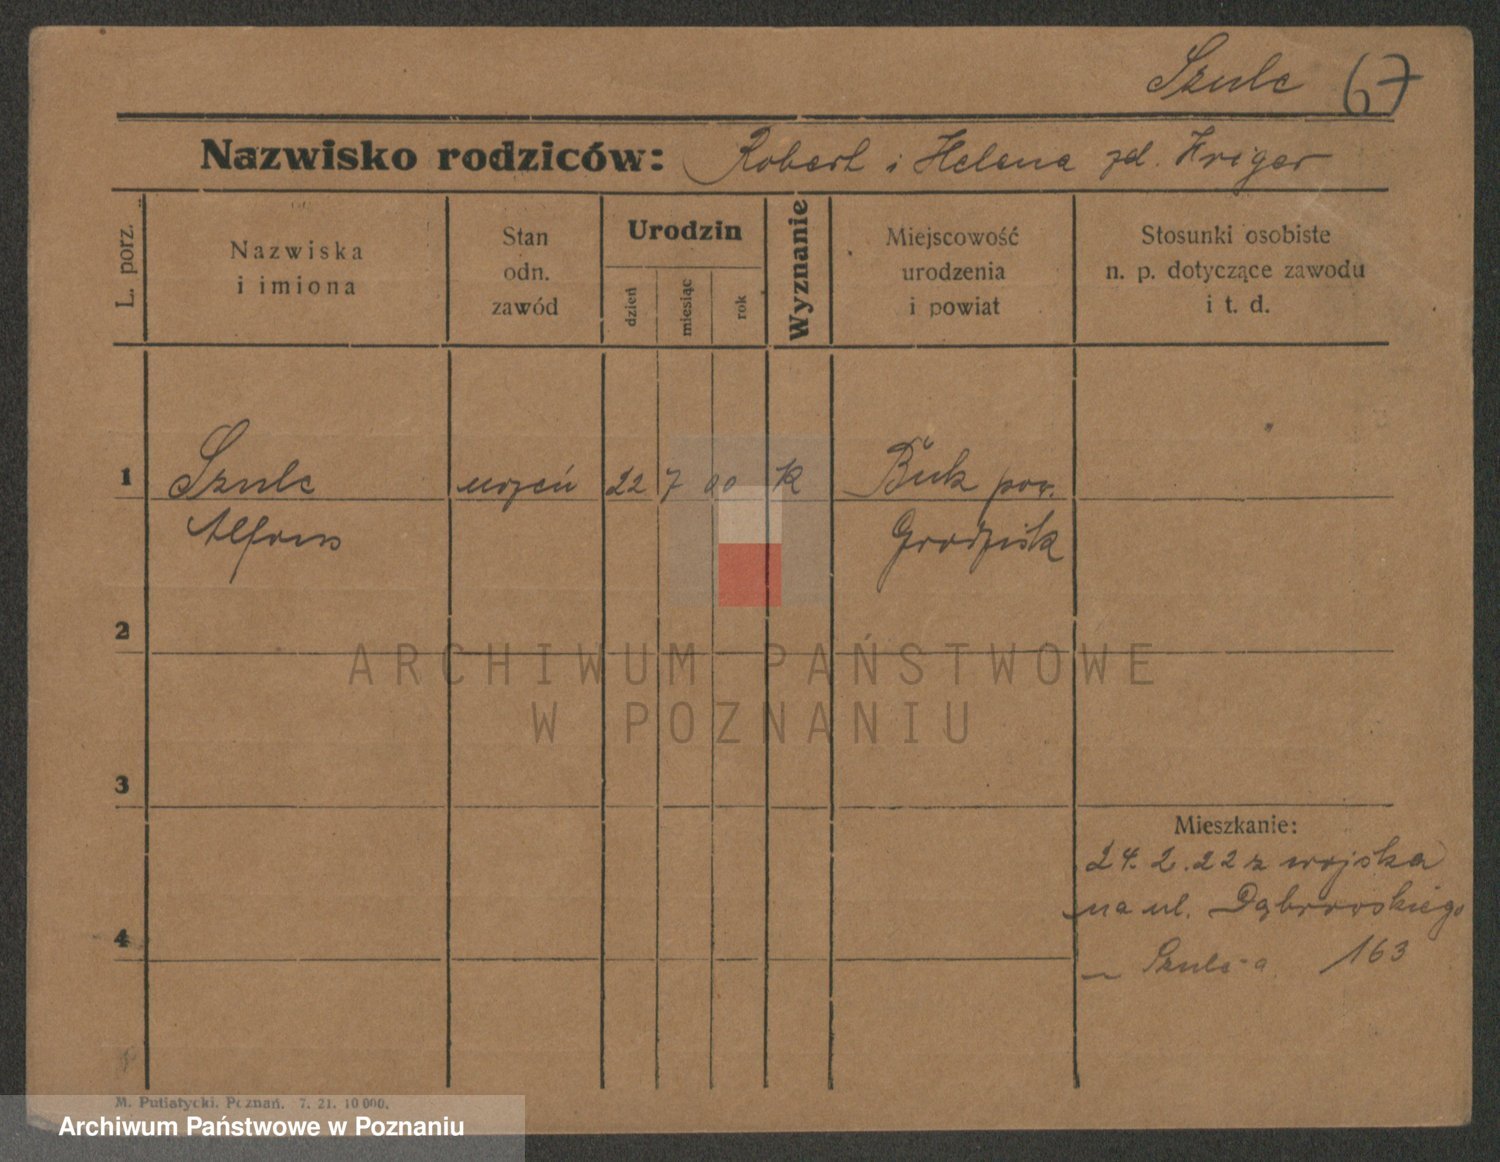 Szulc 67
Nazwisko rodziców: Robert i Helena zd. Kriger
L. porz.
Nazwiska
i imiona
Stan
odn.
zawód
Urodzin
dzień
miesiąc
rok
Wyznanie
Miejscowość
urodzenia
i powiat
Stosunki osobiste
n. p. dotyczące zawodu
i t. d.
1 Szulc uczeń 22 7 00 K Buk pow.
Alfons Grodzisk
2
ARCHIWUM PAŃSTWOWE
W POZNANIU
3
Mieszkanie:
24.2.22 z wojska
na ul. Dąbrowskiego
4
– Szulc-a 163
M. Putiatycki. Poznań. 7. 21. 10 000.
Archiwum Państwowe w Poznaniu